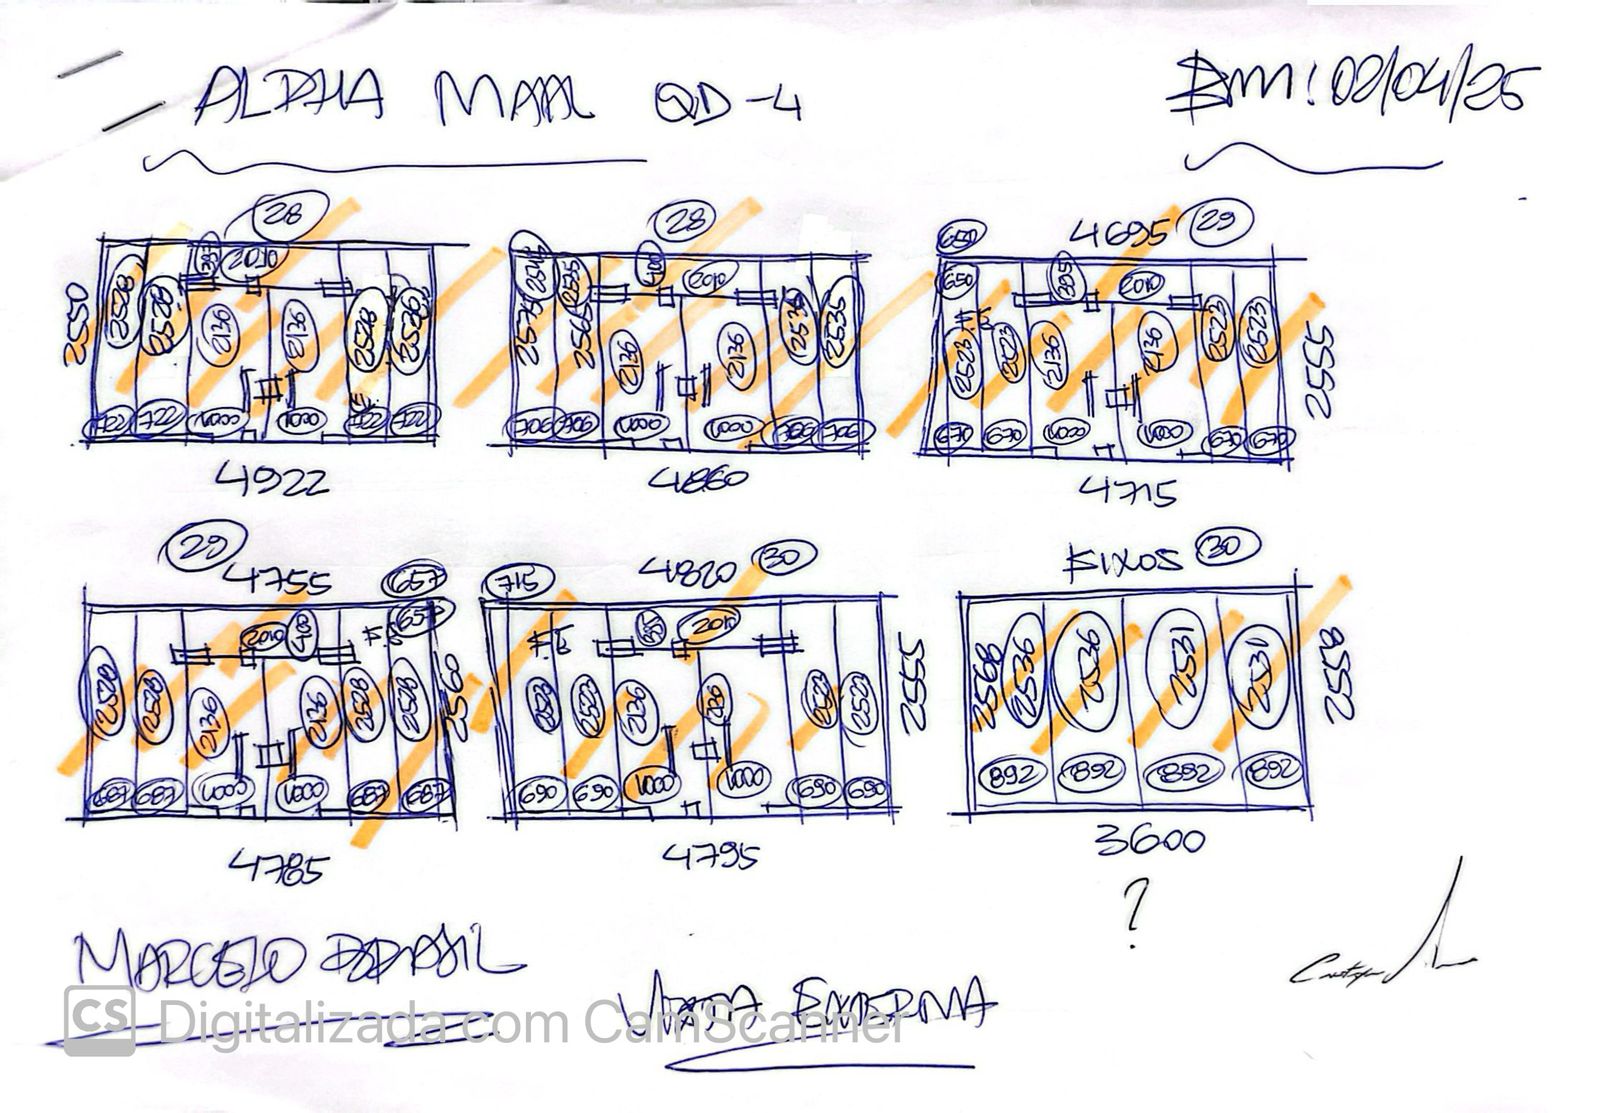 ALPHA MALL QD-4
EM: 02/04/25
28
2550
2528
2528
395
2010
2136
2136
2528
2536
722
722
1000
1000
722
722
4922
28
2575
2545
2565
2535
400
2010
2136
2136
2535
2535
706
706
1000
1000
706
706
4860
4695 29
650
650
F.S
2523
2523
395
2010
2136
2136
2523
2523
2555
670
670
1000
1000
670
670
4715
29
4755
657
657
2528
2528
2010
400
F.S
2136
2136
2528
2528
2560
687
687
1000
1000
687
687
4785
4820 30
715
F.S
395
2010
2523
2523
2136
2136
2523
2523
2555
690
690
1000
1000
690
690
4795
FIXOS 30
2568
2536
2536
2531
2531
2558
892
892
892
892
3600
?
MARCELO BRASIL
VISTA EXTERNA
CS Digitalizada com CamScanner